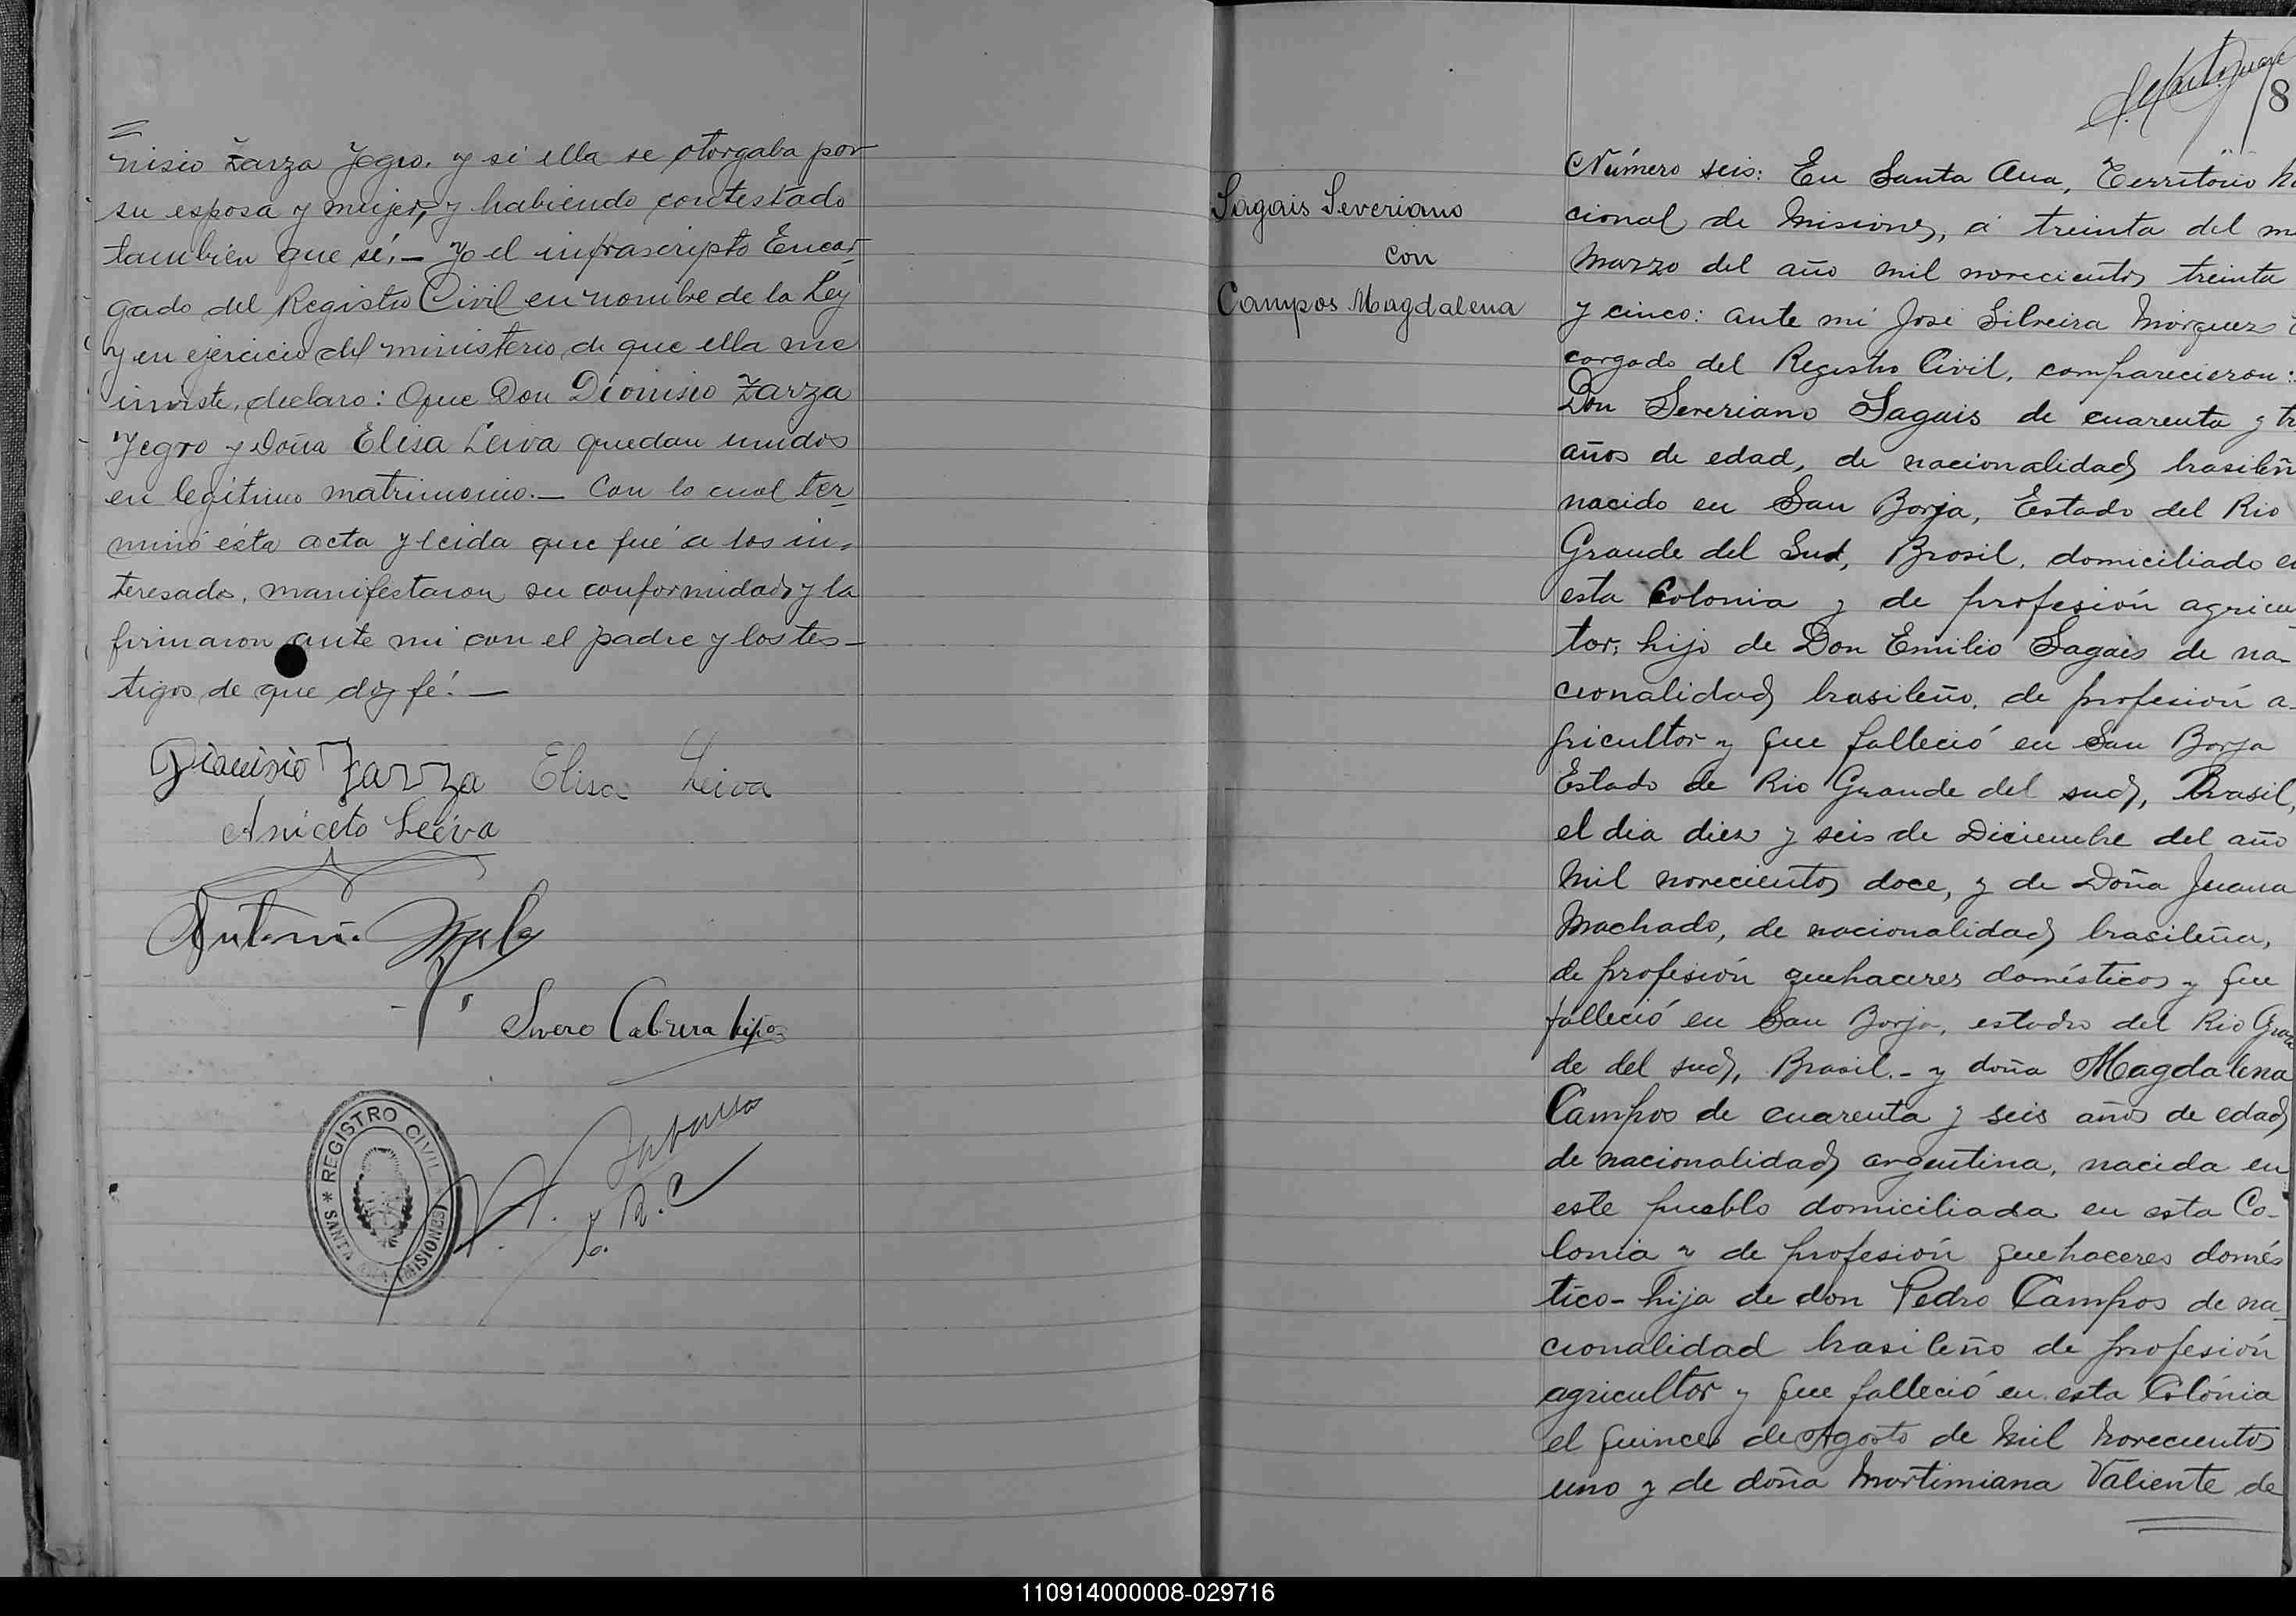 nisio Zarza Yegro. y si ella se otorgaba por
su esposa y mujer, y habiendo contestado
también que sí.— Yo el infrascripto Encar-
gado del Registro Civil en nombre de la Ley
y en ejercicio del ministerio de que ella me
inviste, declaro: Que Don Dionisio Zarza
Yegro y Doña Elisa Leiva quedan unidos
en legítimo matrimonio.— Con lo cual ter-
minó ésta acta y leida que fué a los in-
teresados, manifestaron su conformidad y la
firmaron ante mi con el padre y los tes-
tigos de que doy fé.—
Dionisio Zarza Elisa Leiva
Aniceto Leiva
Antonio
Severo Cabrera hijo
REGISTRO CIVIL
* SANTA ANA (MISIONES)
E. R. C
8
Sagais Severiano
con
Campos Magdalena
Número seis: En Santa Ana, Territorio Na
cional de Misiones, á treinta del m
Marzo del año mil novecientos treinta
y cinco: ante mi José Silveira Márquez E
cargado del Registro Civil, comparecieron:
Don Severiano Sagais de cuarenta y tr
años de edad, de nacionalidad brasileñ
nacido en San Borja, Estado del Rio
Grande del Sud, Brasil, domiciliado en
esta Colonia y de profesión agricul
tor; hijo de Don Emilio Sagais de na-
cionalidad brasileño, de profesión a-
gricultor y que falleció en San Borja
Estado de Rio Grande del sud, Brasil,
el dia diez y seis de Diciembre del año
Mil novecientos doce, y de Doña Juana
Machado, de nacionalidad brasileña,
de profesión quehaceres domésticos y que
falleció en San Borja, estado del Rio Gran
de del sud, Brasil.- y doña Magdalena
Campos de cuarenta y seis años de edad
de nacionalidad argentina, nacida en
este pueblo domiciliada en esta Co-
lonia y de profesión quehaceres domés
tico- hija de don Pedro Campos de na-
cionalidad brasileño de profesión
agricultor y que falleció en esta Colónia
el quince de Agosto de Mil Novecientos
uno y de doña Martimiana Valiente de
110914000008-029716